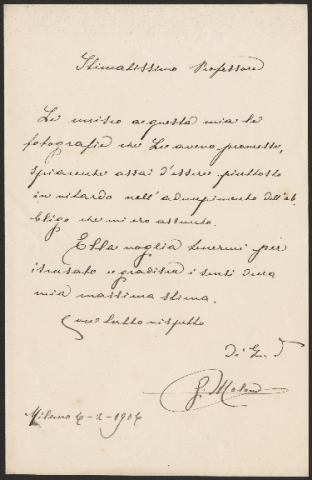 Stimatissimo Professore
Le unisco a questa mia le
fotografie che Le avevo promesse,
spiacente assai d'essere piuttosto
in ritardo nell'adempimento dell'ob-
bligo che mi ero assunto.
Ella voglia tenermi per
iscusato e gradisca i sensi della
mia massima stima.
Con tutto rispetto
Milano 4-2-1904